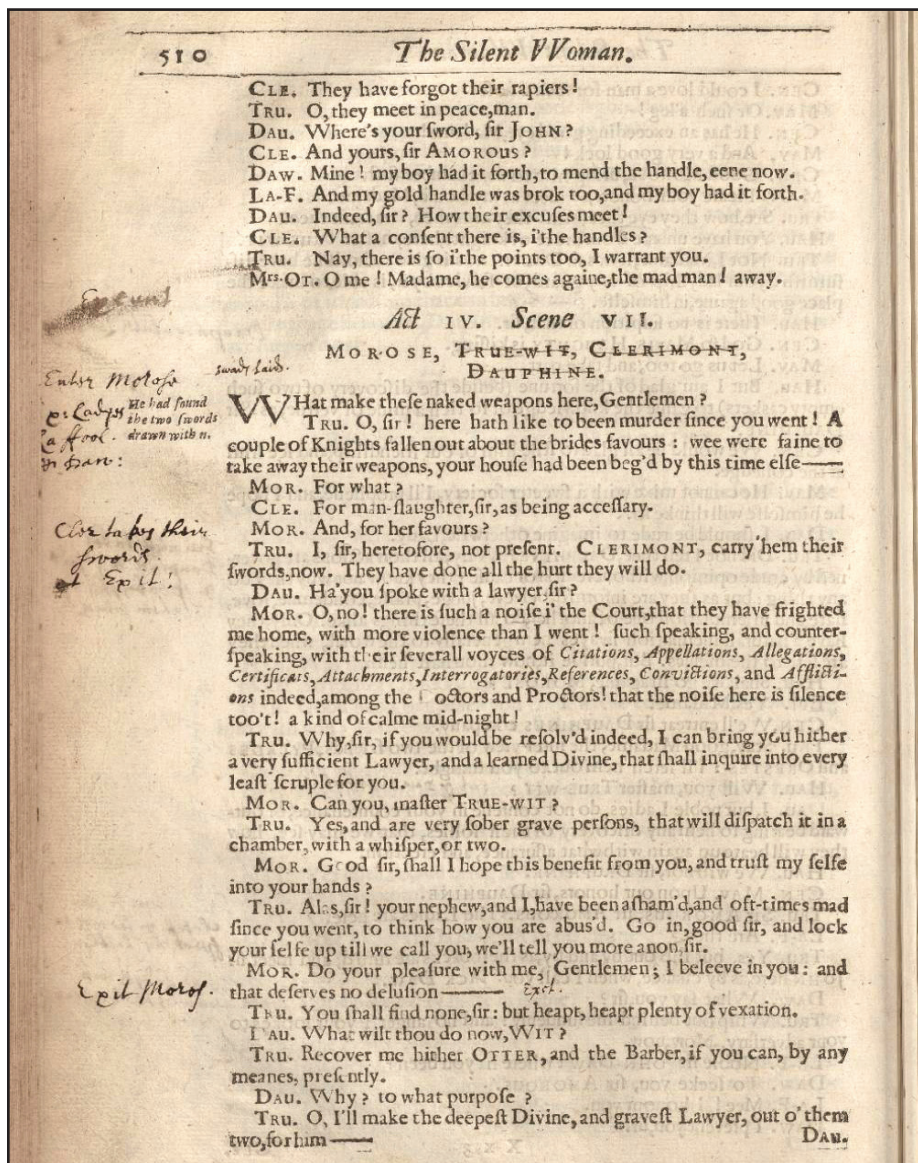 510 The Silent VVoman.
CLE. They have forgot their rapiers!
TRU. O, they meet in peace,man.
DAU. Where's your ſword, ſir JOHN?
CLE. And yours, ſir AMOROUS?
DAW. Mine! my boy had it forth, to mend the handle, eene now.
LA-F. And my gold handle was brok too,and my boy had it forth.
DAU. Indeed, ſir? How their excuſes meet!
CLE. What a conſent there is, i'the handles?
TRU. Nay, there is ſo i'the points too, I warrant you.
Mrs. OT. O me! Madame, he comes againe,the mad man! away.
Exeunt
Act IV. Scene VII.
MOROSE, TRUE-WIT, CLERIMONT,
DAUPHINE.
Enter Moroſe
He had found
the two ſwords
drawn within.
WHat make theſe naked weapons here,Gentlemen?
TRU. O, ſir! here hath like to been murder ſince you went! A
couple of Knights fallen out about the brides favours: wee were faine to
take away their weapons, your houſe had been beg'd by this time elſe——
MOR. For what?
CLE. For man-ſlaughter,ſir,as being acceſſary.
MOR. And, for her favours?
Cler takes their
ſwords
Exit!
TRU. I, ſir, heretofore, not preſent. CLERIMONT, carry 'hem their
ſwords,now. They have done all the hurt they will do.
DAU. Ha'you ſpoke with a lawyer,ſir?
MOR. O,no! there is ſuch a noiſe i' the Court,that they have frighted
me home, with more violence than I went! ſuch ſpeaking, and counter-
ſpeaking, with their ſeverall voyces of Citations, Appellations, Allegations,
Certificats, Attachments, Interrogatories, References, Convictions, and Afflicti-
ons indeed,among the octors and Proctors! that the noiſe here is ſilence
too't! a kind of calme mid-night!
TRU. Why,ſir, if you would be reſolv'd indeed, I can bring you hither
a very ſufficient Lawyer, and a learned Divine, that ſhall inquire into every
leaſt ſcruple for you.
MOR. Can you, maſter TRUE-WIT?
TRU. Yes,and are very ſober grave perſons, that will diſpatch it in a
chamber, with a whiſper,or two.
MOR. Good ſir, ſhall I hope this benefit from you, and truſt my ſelfe
into your hands?
TRU. Alas,ſir! your nephew,and I,have been aſham'd,and oft-times mad
ſince you went, to think how you are abus'd. Go in,good ſir, and lock
your ſelfe up till we call you, we'll tell you more anon,ſir.
MOR. Do your pleaſure with me, Gentlemen; I beleeve in you: and
that deſerves no deluſion—— Exit.
Exit Moroſ.
TRU. You ſhall find none,ſir: but heapt, heapt plenty of vexation.
DAU. What wilt thou do now, WIT?
TRU. Recover me hither OTTER, and the Barber, if you can, by any
meanes, preſently.
DAU. Why? to what purpoſe?
TRU. O, I'll make the deepeſt Divine, and graveſt Lawyer, out o' them
two,for him——
DAU.